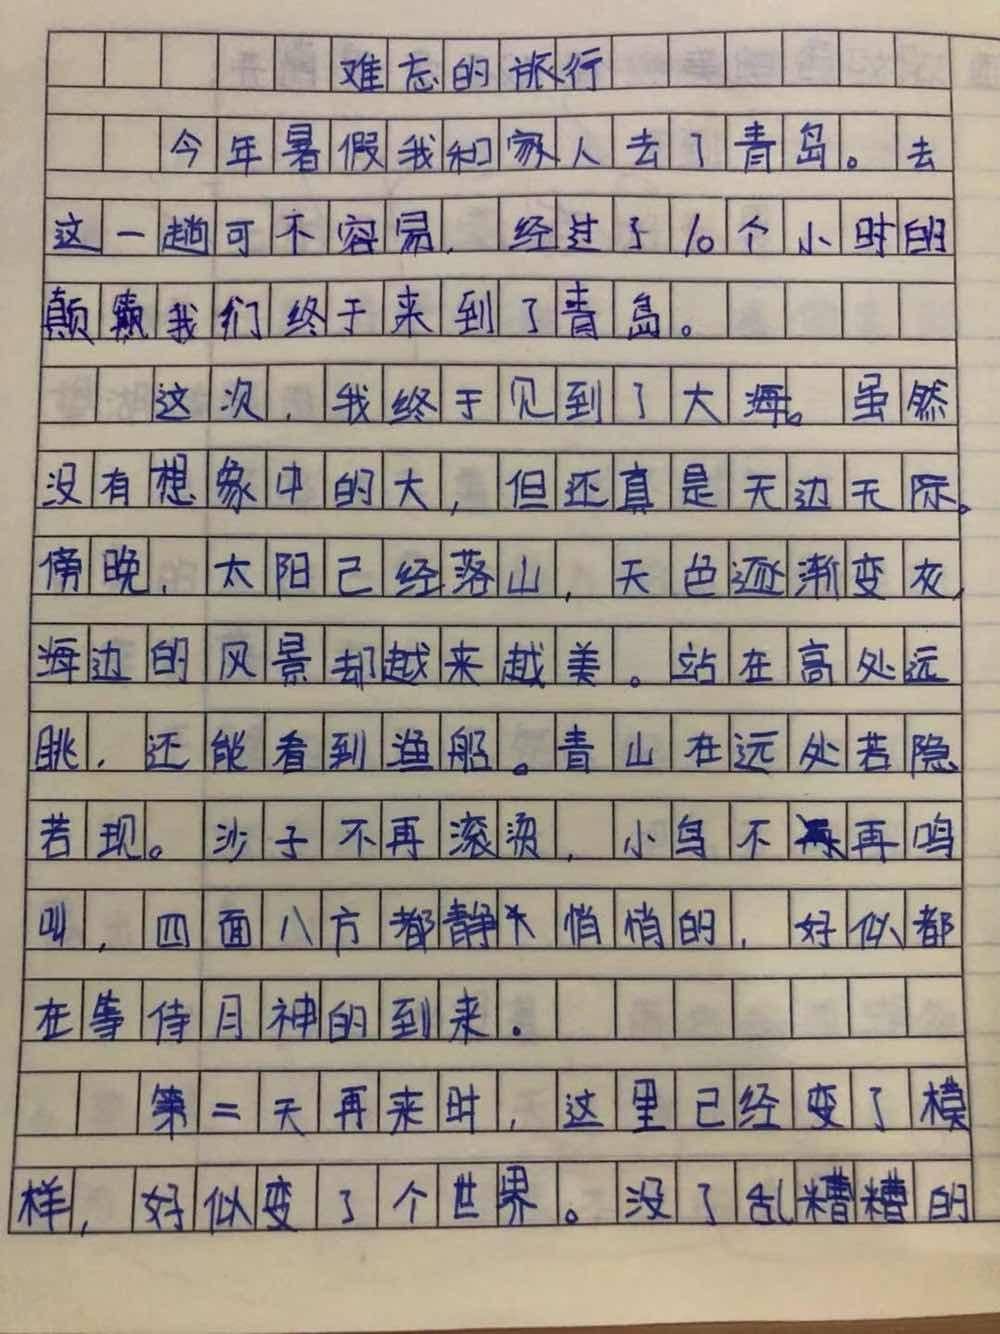 难忘的旅行
今年暑假我和家人去了青岛。去
这一趟可不容易，经过了10个小时的
颠簸我们终于来到了青岛。
这次，我终于见到了大海。虽然
没有想象中的大，但还真是无边无际。
傍晚，太阳已经落山，天色逐渐变灰，
海边的风景却越来越美。站在高处远
眺，还能看到渔船。青山在远处若隐
若现。沙子不再滚烫，小鸟不再鸣
叫，四面八方都静悄悄的，好似都
在等待月神的到来。
第二天再来时，这里已经变了模
样，好似变了个世界。没了乱糟糟的